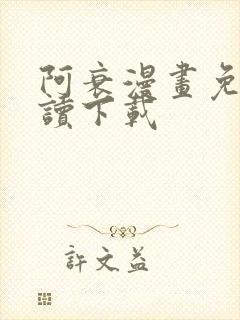 阿衰漫畫免
讀下載
許文益